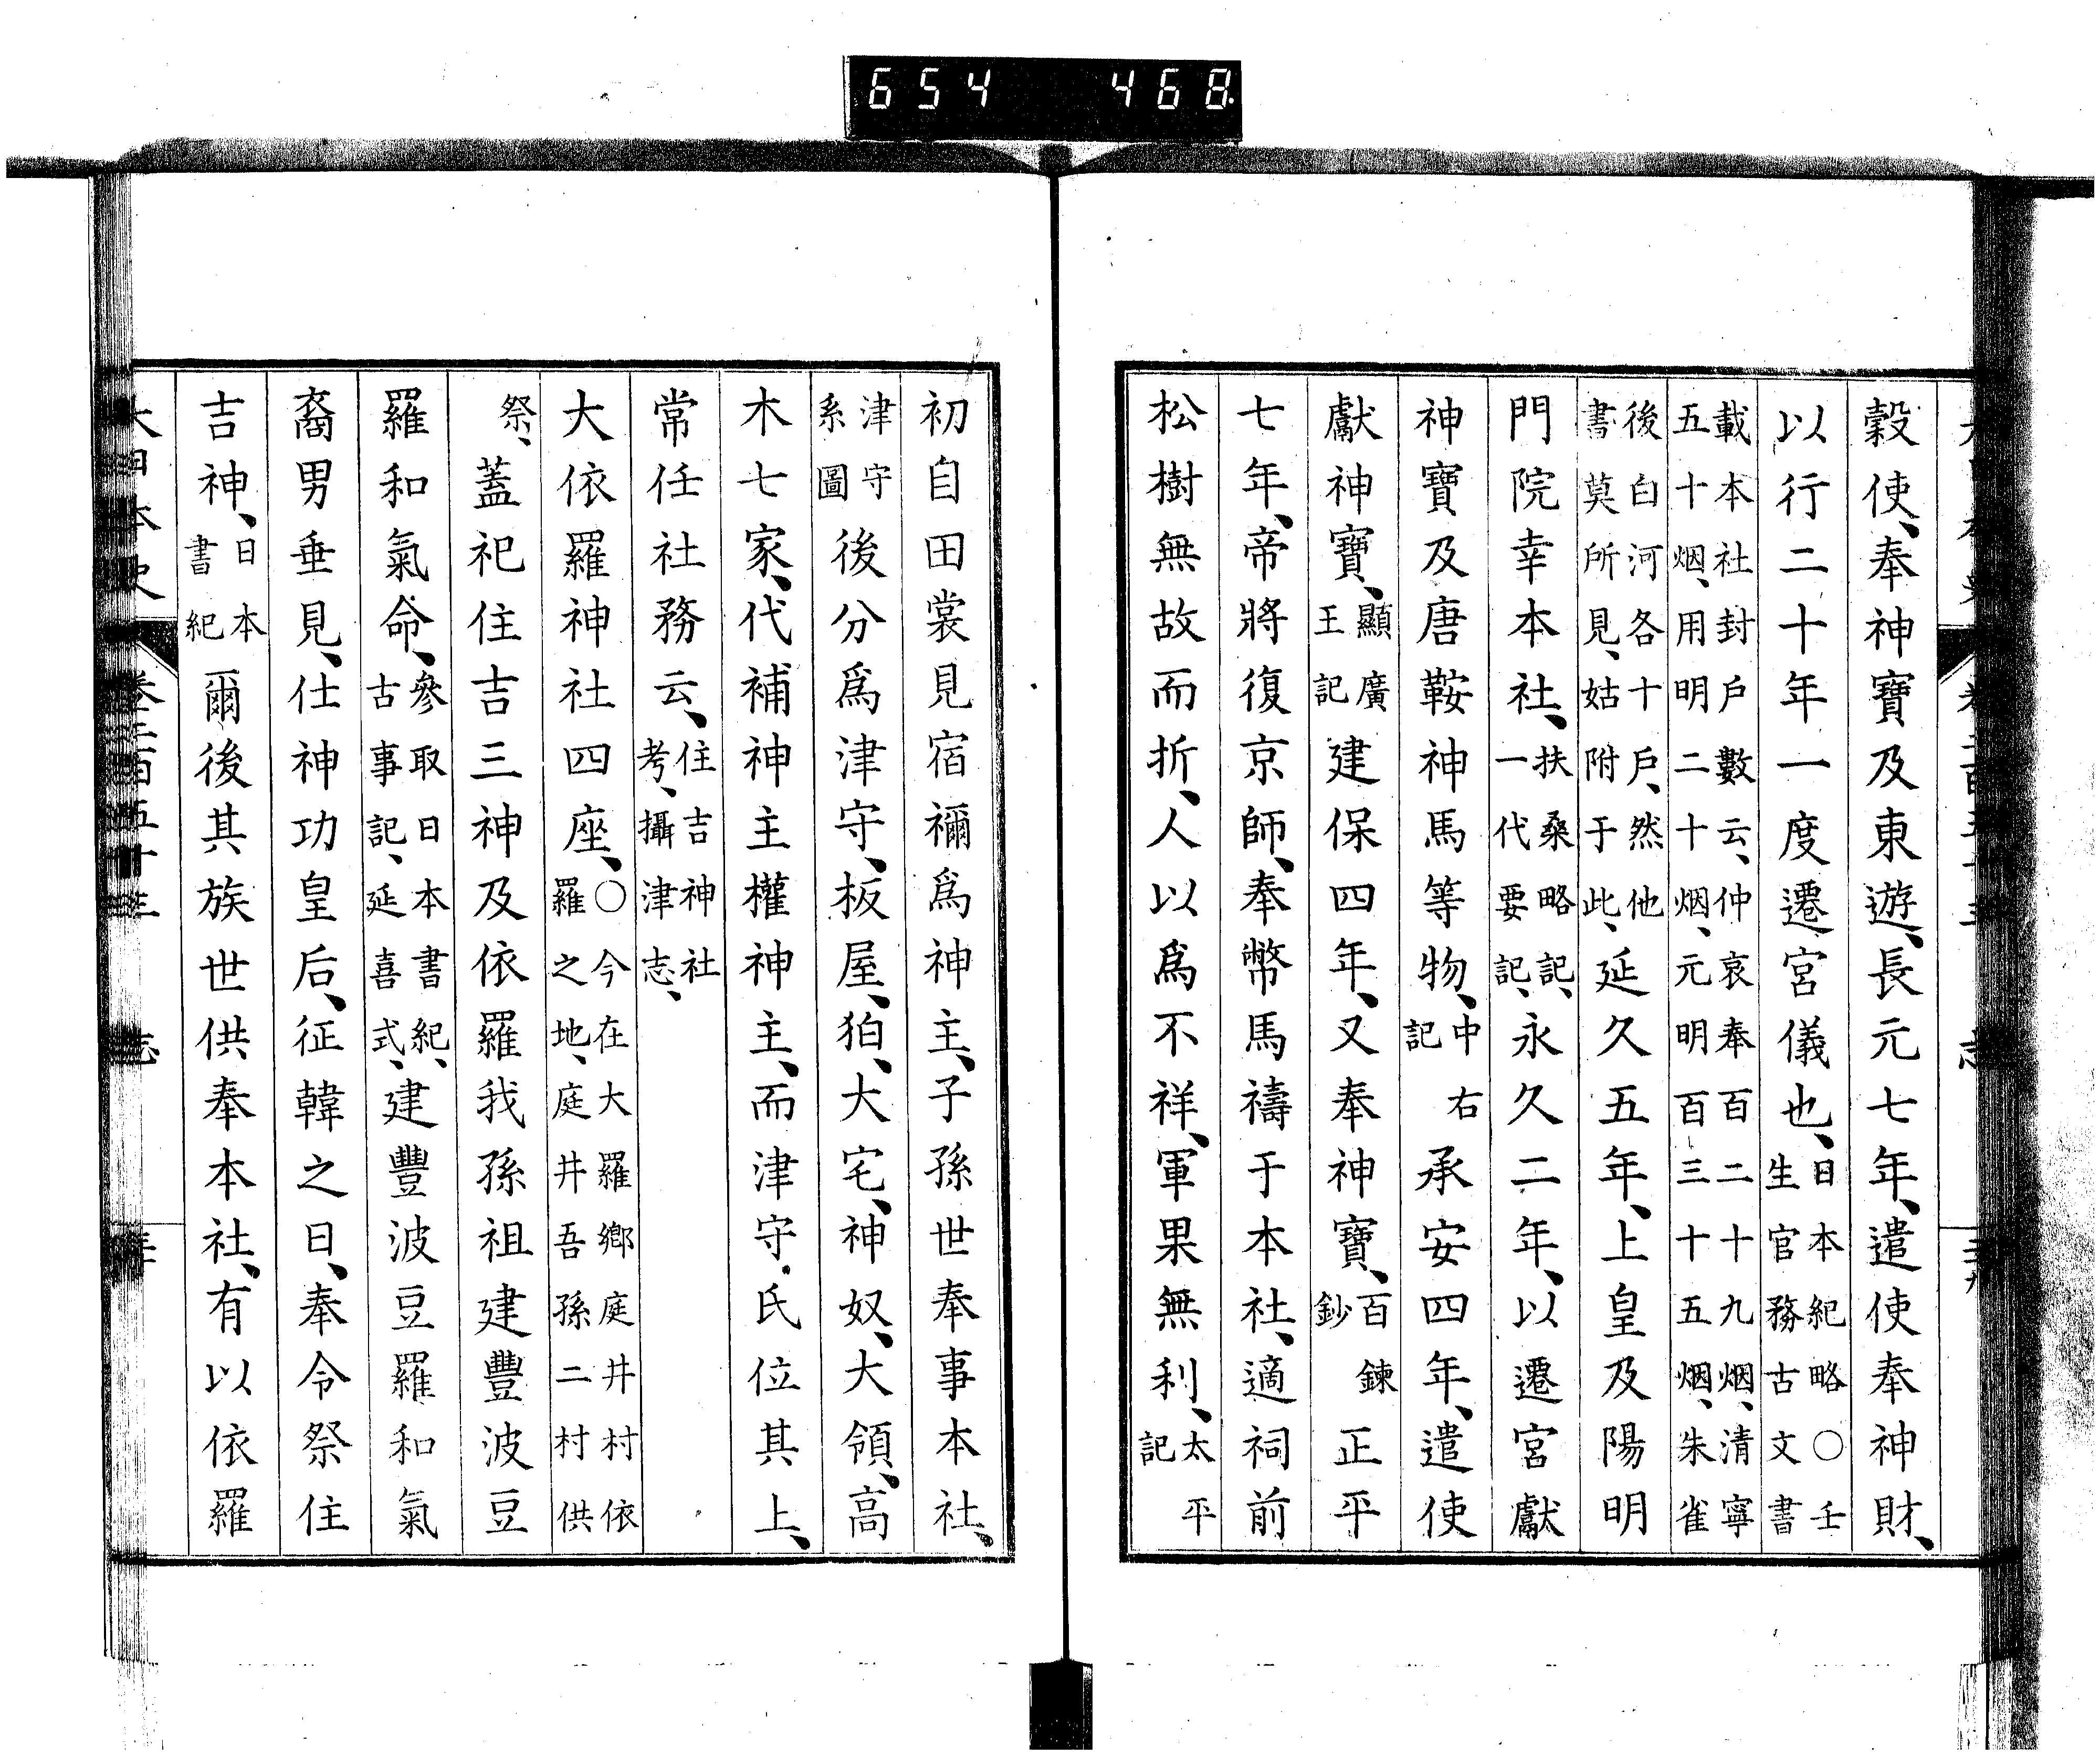 654 468
穀使、奉神寶及東遊、長元七年、遣使奉神財、
以行二十年一度遷宮儀也、日本紀略○壬生官務古文書
載本社封戶數云、仲哀奉百二十九烟、清寧五十烟、用明二十烟、元明百三十五烟、朱雀
後白河各十戶、然他書莫所見、姑附于此、延久五年、上皇及陽明
門院幸本社、扶桑略記、一代要記、永久二年、以遷宮獻
神寶及唐鞍神馬等物、中右記承安四年、遣使
獻神寶、顯廣王記建保四年、又奉神寶、百鍊鈔正平
七年、帝將復京師、奉幣馬禱于本社、適祠前
松樹無故而折、人以爲不祥、軍果無利、太平記
初自田裳見宿禰爲神主、子孫世奉事本社、
津守系圖後分爲津守、板屋、狛、大宅、神奴、大領、高
木七家、代補神主權神主、而津守氏位其上、
常任社務云、住吉神社考、攝津志、
大依羅神社四座、○今在大羅鄉庭井村依羅之地、庭井吾孫二村供
祭、蓋祀住吉三神及依羅我孫祖建豐波豆
羅和氣命、參取日本書紀、古事記、延喜式、建豐波豆羅和氣
裔男垂見、仕神功皇后、征韓之日、奉令祭住
吉神、日本書紀爾後其族世供奉本社、有以依羅
大日本史 卷二百五十三 志